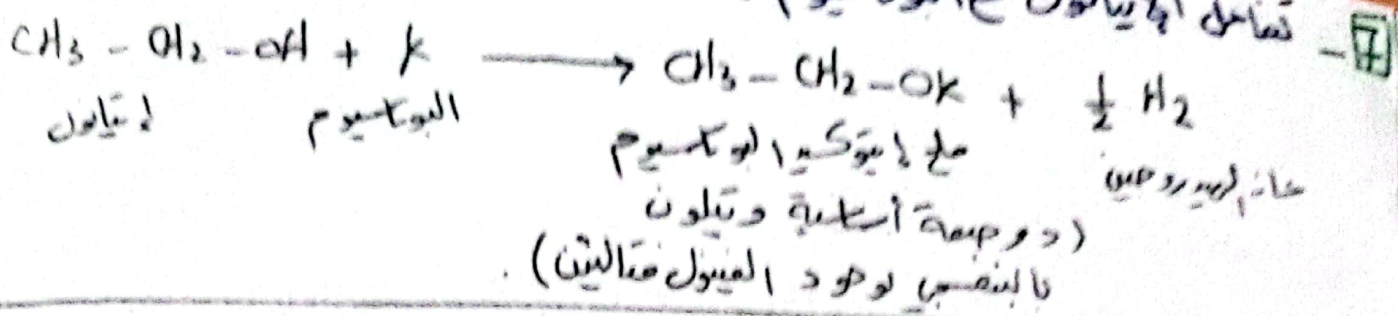 7- تفاعل الإيتانول مع البوتاسيوم
CH3 - CH2 - OH + K ⟶ CH3 - CH2 - OK + ½ H2
إيتانول البوتاسيوم ملح إيتوكسيد البوتاسيوم غاز الهيدروجين
(ذو صبغة أساسية ويتلون
بالبنفسجي لوجود الفينول فتالئين).